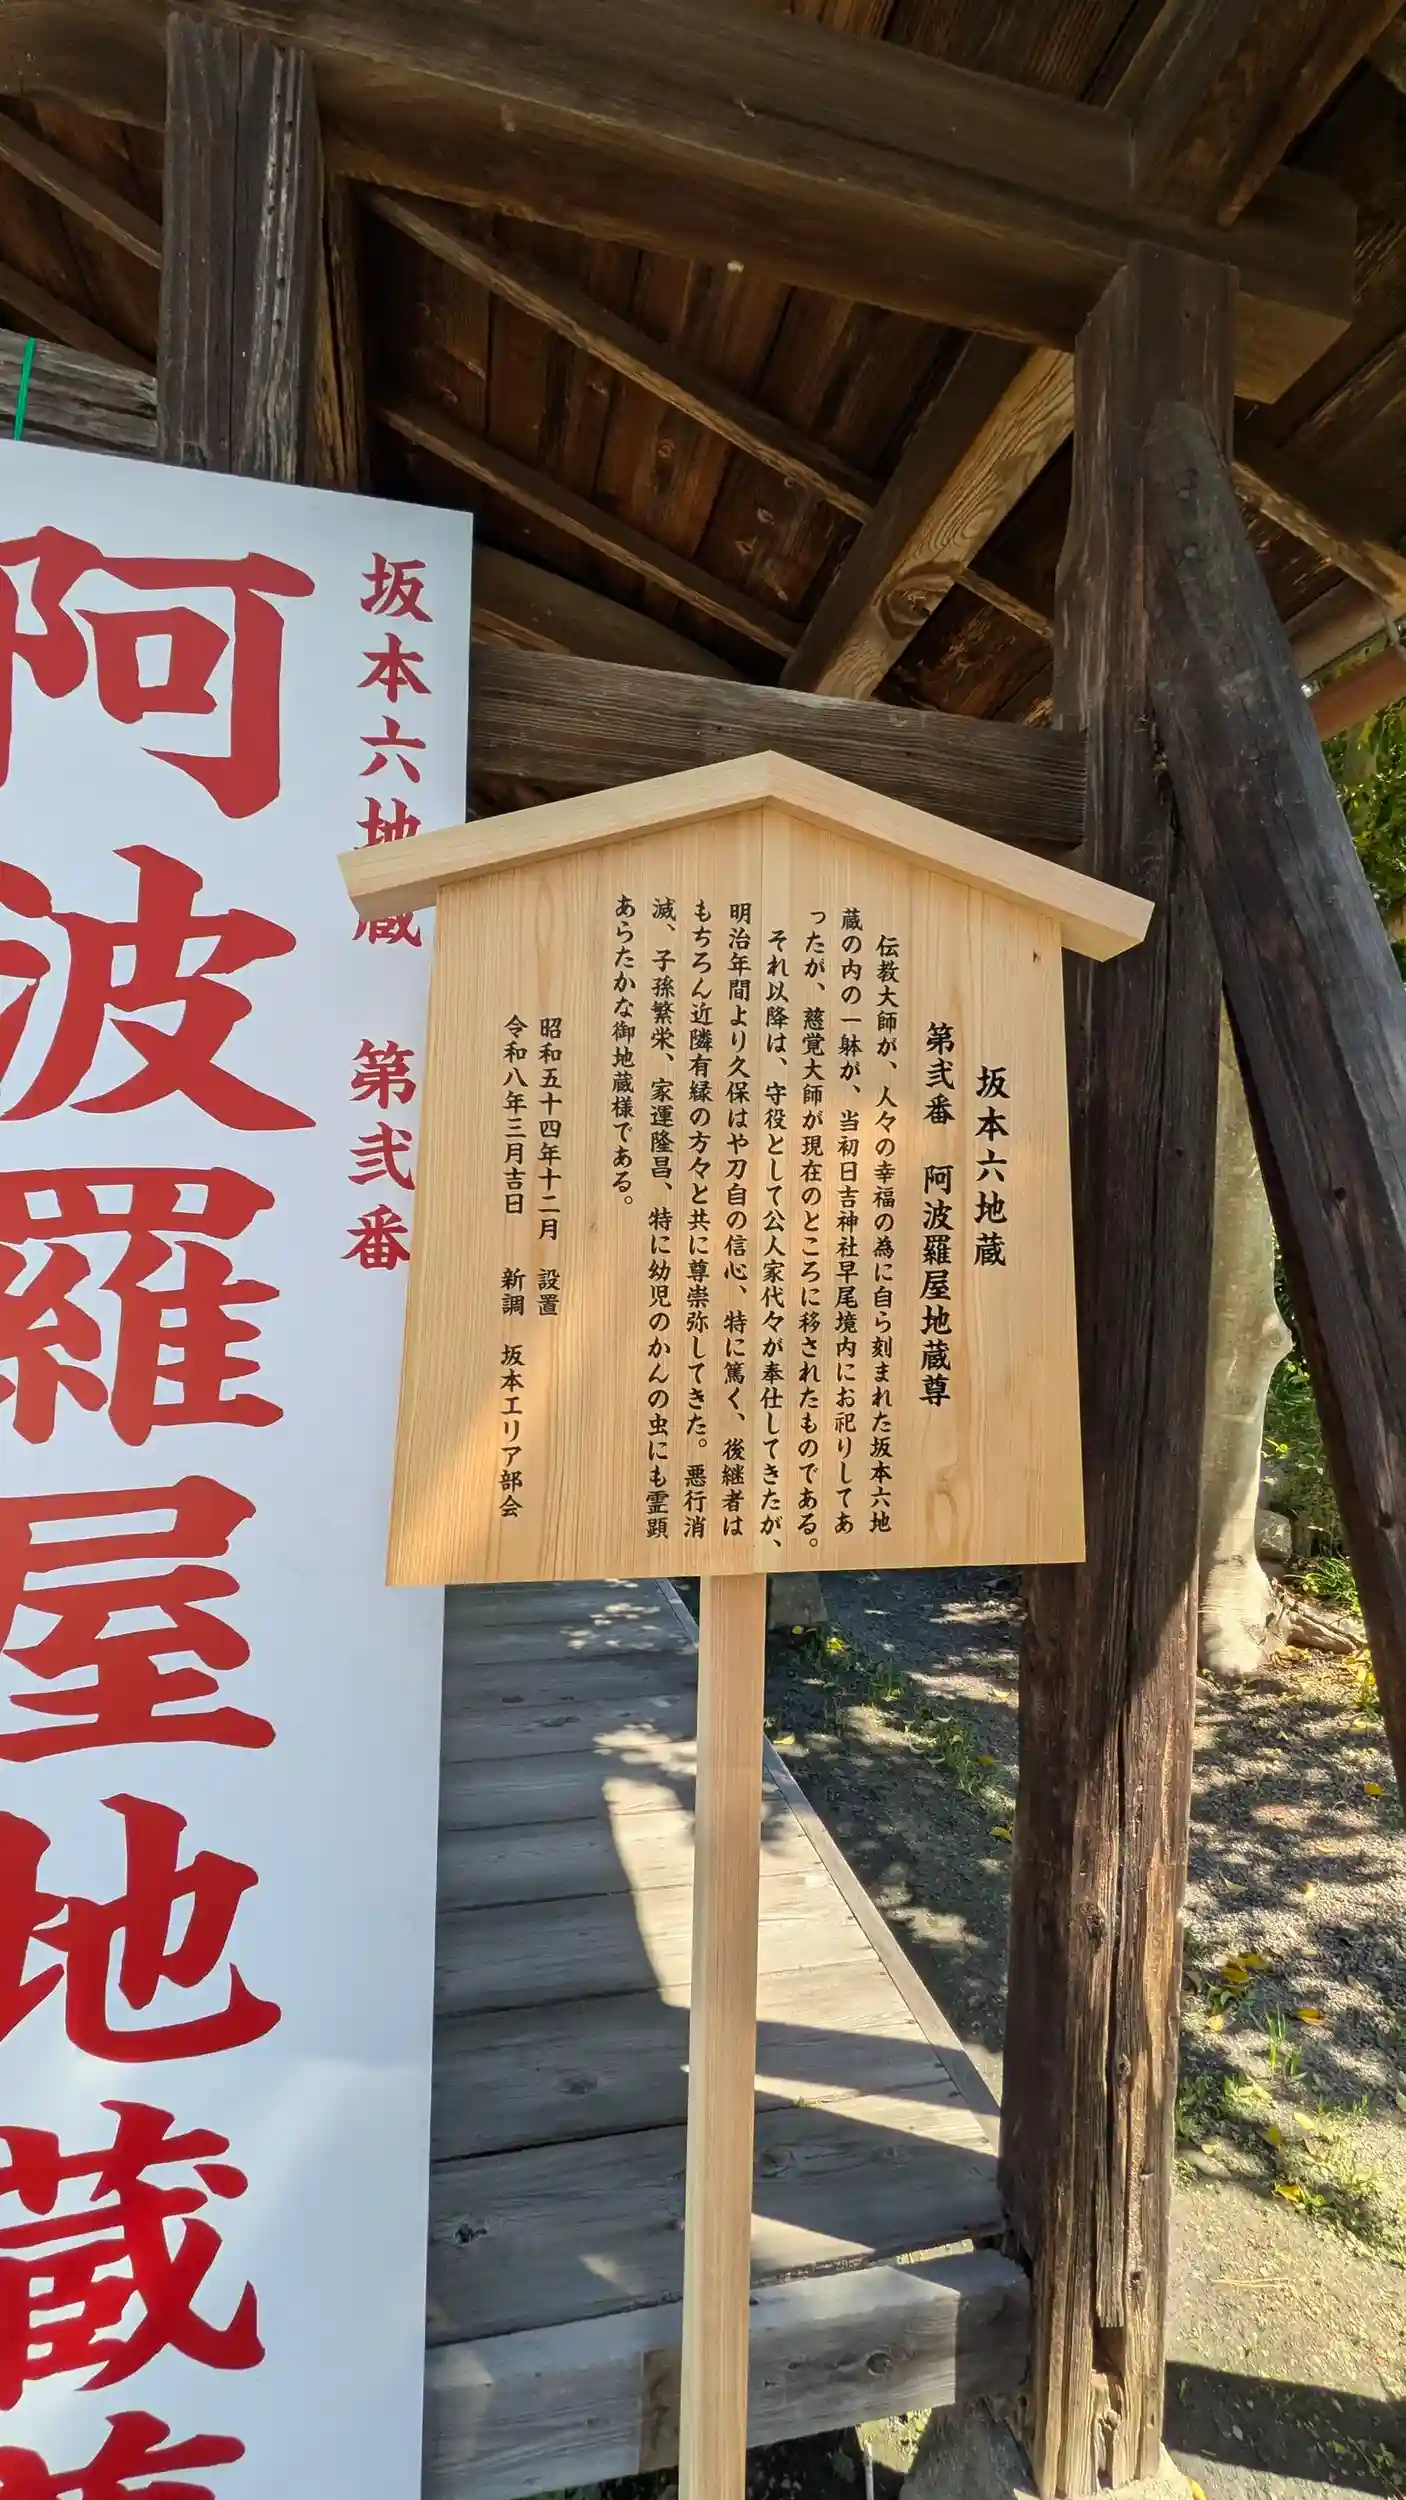 坂本六地蔵
第弐番　阿波羅屋地蔵尊
伝教大師が、人々の幸福の為に自ら刻まれた坂本六地
蔵の内の一躰が、当初日吉神社早尾境内にお祀りしてあ
ったが、慈覚大師が現在のところに移されたものである。
それ以降は、守役として公人家代々が奉仕してきたが、
明治年間より久保はや刀自の信心、特に篤く、後継者は
もちろん近隣有縁の方々と共に尊崇弥してきた。悪行消
滅、子孫繁栄、家運隆昌、特に幼児のかんの虫にも霊顕
あらたかな御地蔵様である。
昭和五十四年十二月　設置
令和八年三月吉日　新調　坂本エリア部会
坂本六地蔵　第弐番
阿波羅屋地蔵